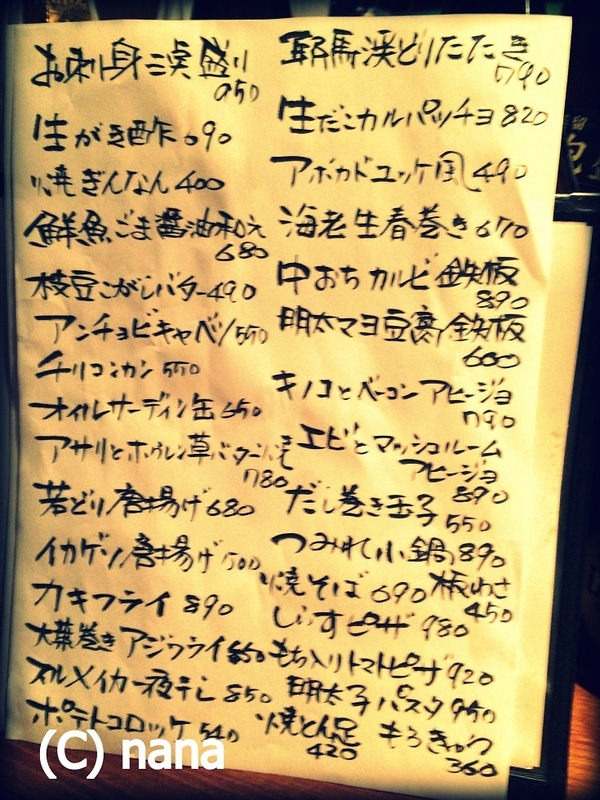 お刺身三点盛り
950
生がき酢 690
焼ぎんなん 400
鮮魚ごま醤油和え
680
枝豆こがしバター 490
アンチョビキャベツ 550
チリコンカン 550
オイルサーディン缶 650
アサリとホウレン草バター焼き
780
若どり唐揚げ 680
イカゲソ唐揚げ 500
カキフライ 890
大葉巻きアジフライ 650
スルメイカ一夜干し 850
ポテトコロッケ 540
耶馬渓どりたたき
790
生だこカルパッチョ 820
アボカドユッケ風 490
海老生春巻き 670
中おちカルビ鉄板
890
明太マヨ豆腐鉄板
600
キノコとベーコンアヒージョ
790
エビとマッシュルーム
アヒージョ
890
だし巻き玉子
550
つみれ小鍋 890
焼そば 690 板わさ
450
しらすピザ 980
もち入りトマトピザ 920
明太子パスタ 950
焼とん足 もろきゅう
420
360
(C) nana